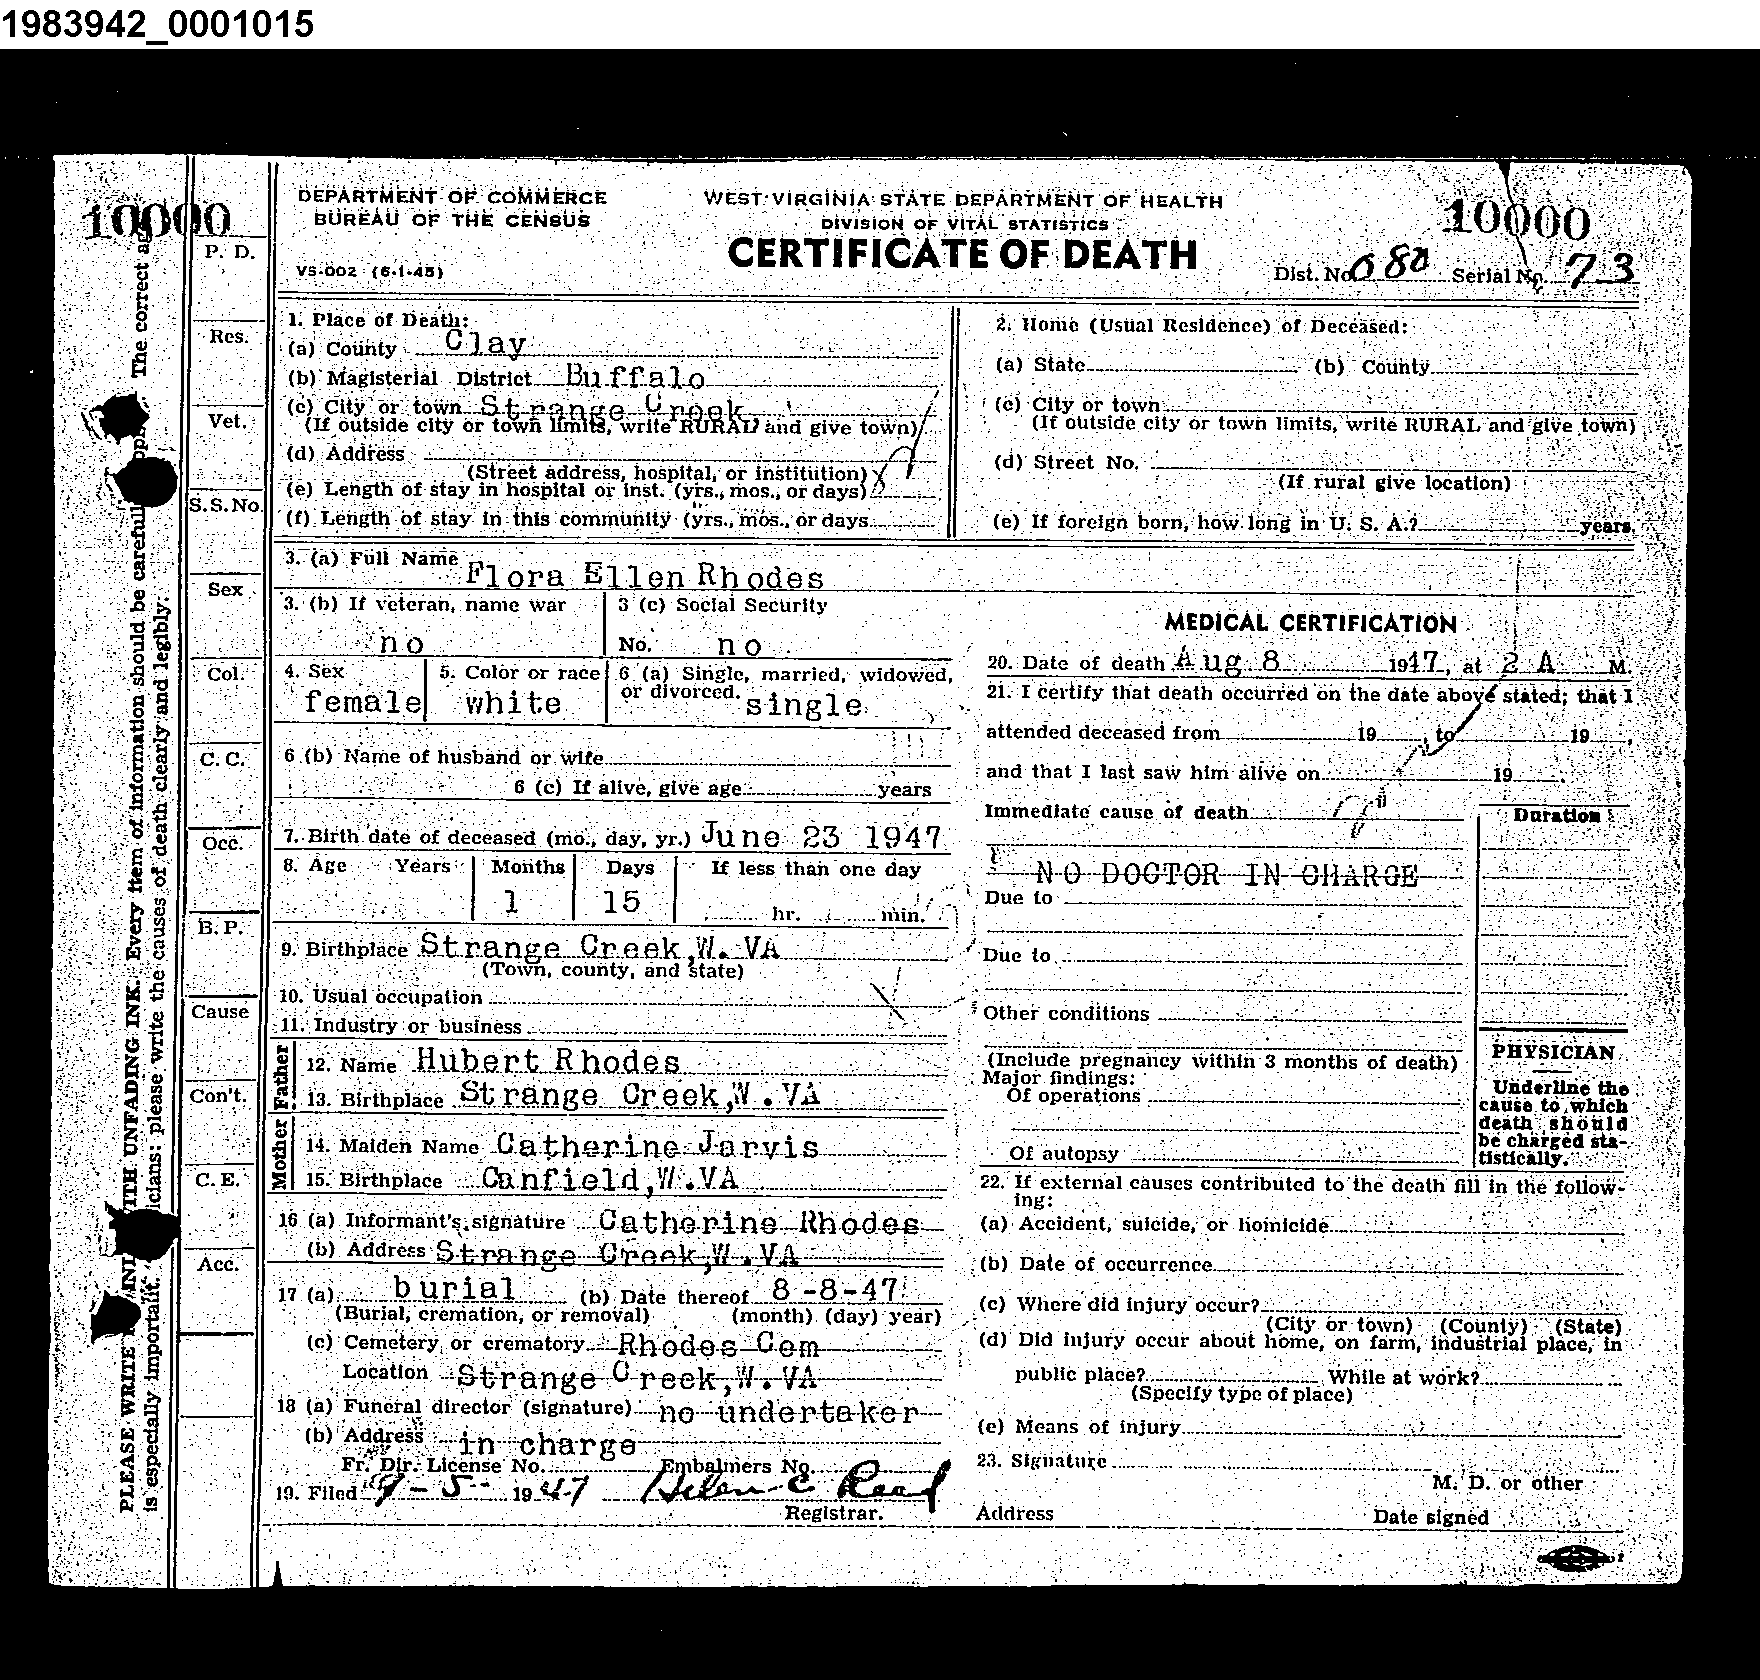 1983942_0001015
10000
DEPARTMENT OF COMMERCE
BUREAU OF THE CENSUS
VS-002 (6-1-45)
WEST VIRGINIA STATE DEPARTMENT OF HEALTH
DIVISION OF VITAL STATISTICS
CERTIFICATE OF DEATH
10000
Dist. No. 080 Serial No. 73
P. D.
Res.
Vet.
S.S.No.
Sex
Col.
C. C.
Occ.
B. P.
Cause
Con't.
C. E.
Acc.
PLEASE WRITE WITH UNFADING INK. Every item of information should be carefull The correct ag
is especially important. icians: please write the causes of death clearly and legibly.
1. Place of Death:
(a) County Clay
(b) Magisterial District Buffalo
(c) City or town Strange Creek
(If outside city or town limits, write RURAL and give town)
(d) Address
(Street address, hospital, or institution)
(e) Length of stay in hospital or inst. (yrs., mos., or days)
(f) Length of stay in this community (yrs., mos., or days
2. Home (Usual Residence) of Deceased:
(a) State (b) County
(c) City or town
(If outside city or town limits, write RURAL and give town)
(d) Street No.
(If rural give location)
(e) If foreign born, how long in U. S. A.? years.
3. (a) Full Name Flora Ellen Rhodes
3. (b) If veteran, name war no
3 (c) Social Security
No. no
4. Sex female
5. Color or race white
6 (a) Single, married, widowed,
or divorced. single
6 (b) Name of husband or wife
6 (c) If alive, give age years
7. Birth date of deceased (mo., day, yr.) June 23 1947
8. Age Years Months Days If less than one day
1 15 hr. min.
9. Birthplace Strange Creek,W. VA
(Town, county, and state)
10. Usual occupation
11. Industry or business
Father
12. Name Hubert Rhodes
13. Birthplace Strange Creek,W.VA
Mother
14. Maiden Name Catherine Jarvis
15. Birthplace Canfield,W.VA
16 (a) Informant's signature Catherine Rhodes
(b) Address Strange Creek,W.VA
17 (a) burial (b) Date thereof 8-8-47
(Burial, cremation, or removal) (month) (day) year)
(c) Cemetery or crematory Rhodes Cem
Location Strange Creek,W.VA
18 (a) Funeral director (signature) no undertaker
(b) Address in charge
Fr. Dir. License No. Embalmers No.
19. Filed 9-5- 1947 Helen C Reed
Registrar.
MEDICAL CERTIFICATION
20. Date of death Aug 8 1947, at 2 A M.
21. I certify that death occurred on the date above stated; that I
attended deceased from 19 , to 19 ,
and that I last saw him alive on 19 .
Immediate cause of death
Duration
NO DOCTOR IN CHARGE
Due to
Due to
Other conditions
(Include pregnancy within 3 months of death)
Major findings:
Of operations
Of autopsy
PHYSICIAN
Underline the
cause to which
death should
be charged sta-
tistically.
22. If external causes contributed to the death fill in the follow-
ing:
(a) Accident, suicide, or homicide
(b) Date of occurrence
(c) Where did injury occur?
(City or town) (County) (State)
(d) Did injury occur about home, on farm, industrial place, in
public place? While at work?
(Specify type of place)
(e) Means of injury
23. Signature
M. D. or other
Address Date signed